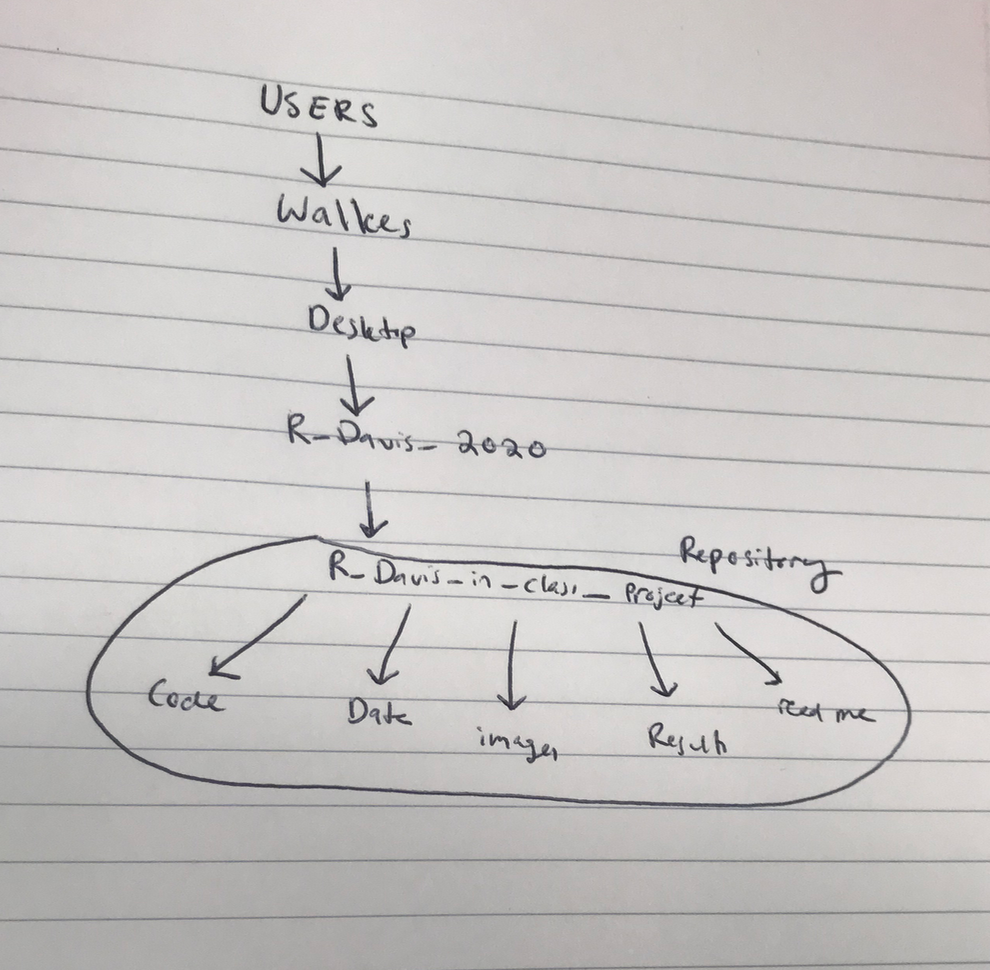 USERS
Walkes
Desktop
R_Davis_2020
Repository
R_Davis_in_class_Project
Code
Date
images
Result
read me